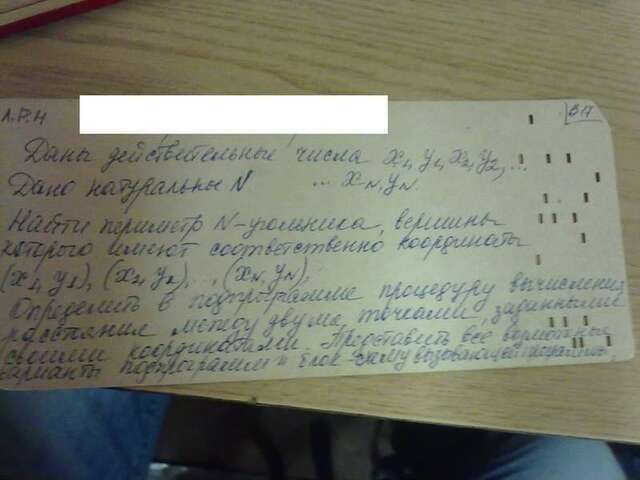 Л.Р.Н
ВН
Даны действительные числа x1, y1, x2, y2, ...
Дано натуральны N ... xN, yN.
Найти периметр N-угольника, вершины
которого имеют соответственно координаты
(x1, y1), (x2, y2), ..., (xN, yN)
Определить в подпрограмме процедуру вычисления
расстояния между двумя точками, заданными
своими координатами. Представить все
варианты подпрограмм и блок схему вызывающей программы.